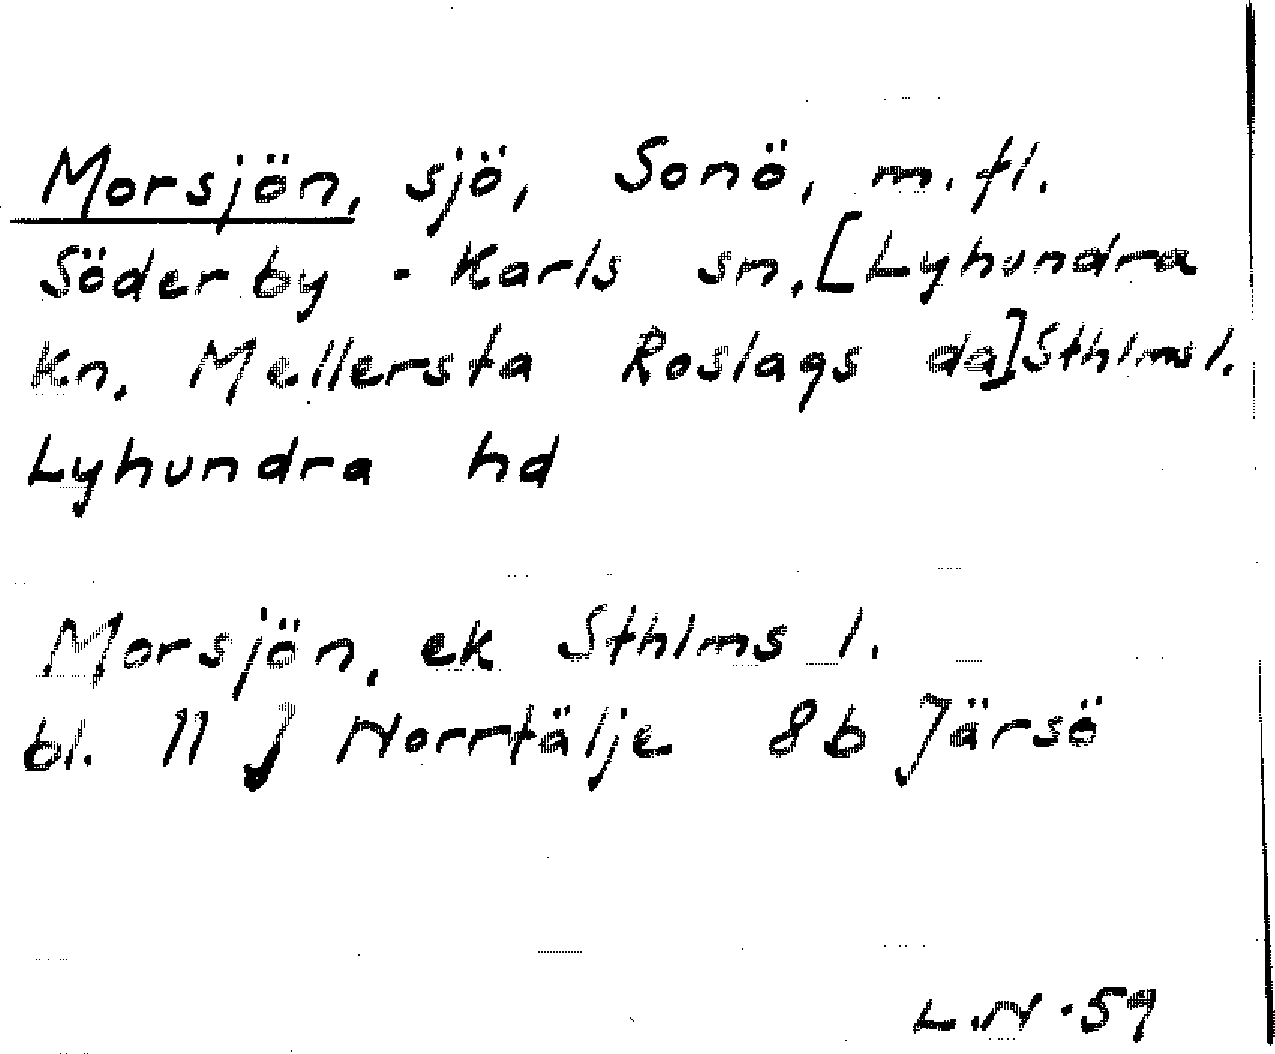 Morsjön, sjö, Sonö, m.fl.
Söderby-Karls sn, [Lyhundra
kn, Mellersta Roslags da] Sthlms l.
Lyhundra hd
Morsjön, ek Sthlms l.
bl. 11 J Norrtälje 8b Järsö
L.N. 59